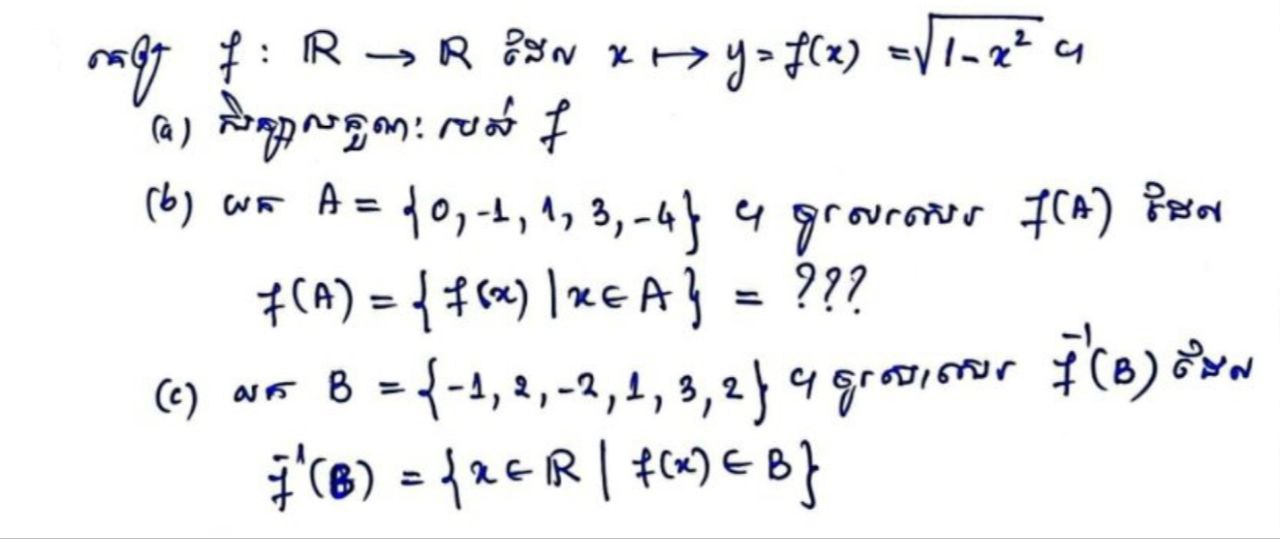 គេឲ្យ f : ℝ → ℝ ដែល x ↦ y = f(x) = √(1-x²) ។
(a) សិក្សាលក្ខណៈ របស់ f
(b) យក A = {0, -1, 1, 3, -4} ។ ចូរសរសេរ f(A) ដែល
f(A) = {f(x) | x ∈ A} = ???
(c) យក B = {-1, 2, -2, 1, 3, 2} ។ ចូរសរសេរ f⁻¹(B) ដែល
f⁻¹(B) = {x ∈ ℝ | f(x) ∈ B}